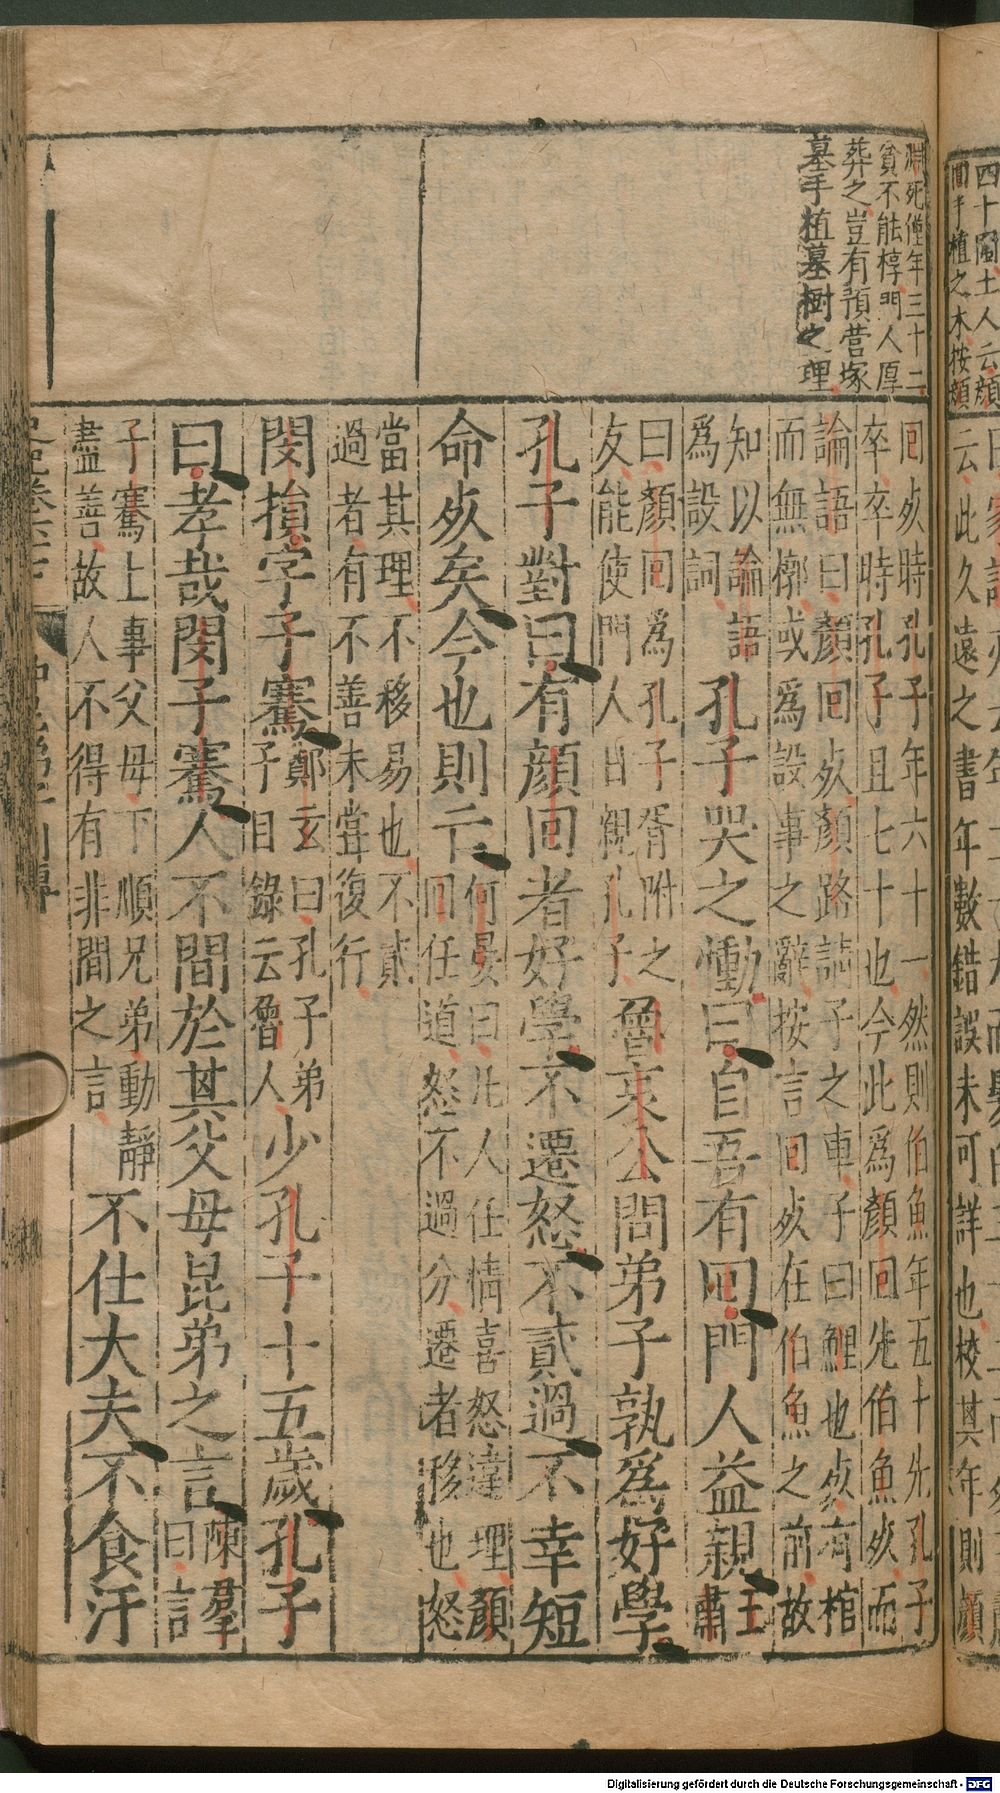 四十國土人云顏
間手植之木按顏
云此久遠之書年數錯誤未可詳也校其年則顏
淵死僅年三十二
貧不能椁門人厚
葬之豈有預營塚
墓手植墓樹之理
回死時孔子年六十一然則伯魚年五十先孔子
卒卒時孔子且七十也今此爲顏回先伯魚死而
論語曰顏回死顏路請子之車子曰鯉也死有棺
而無槨或爲設事之辭按言回死在伯魚之前故
知以論語
爲設詞
孔子哭之慟曰自吾有回門人益親
王
肅
曰顏回爲孔子胥附之
友能使門人日親孔子
魯哀公問弟子孰爲好學
孔子對曰有顏回者好學不遷怒不貳過不幸短
命死矣今也則亡
何晏曰凡人任情喜怒違理顏
回任道怒不過分遷者移也怒
當其理不移易也不貳
過者有不善未甞復行
閔損字子騫
鄭玄曰孔子弟
子目錄云魯人
少孔子十五歲孔子
曰孝哉閔子騫人不間於其父母昆弟之言
陳羣
曰言
子騫上事父母下順兄弟動靜
盡善故人不得有非間之言
不仕大夫不食汙
Digitalisierung gefördert durch die Deutsche Forschungsgemeinschaft - DFG